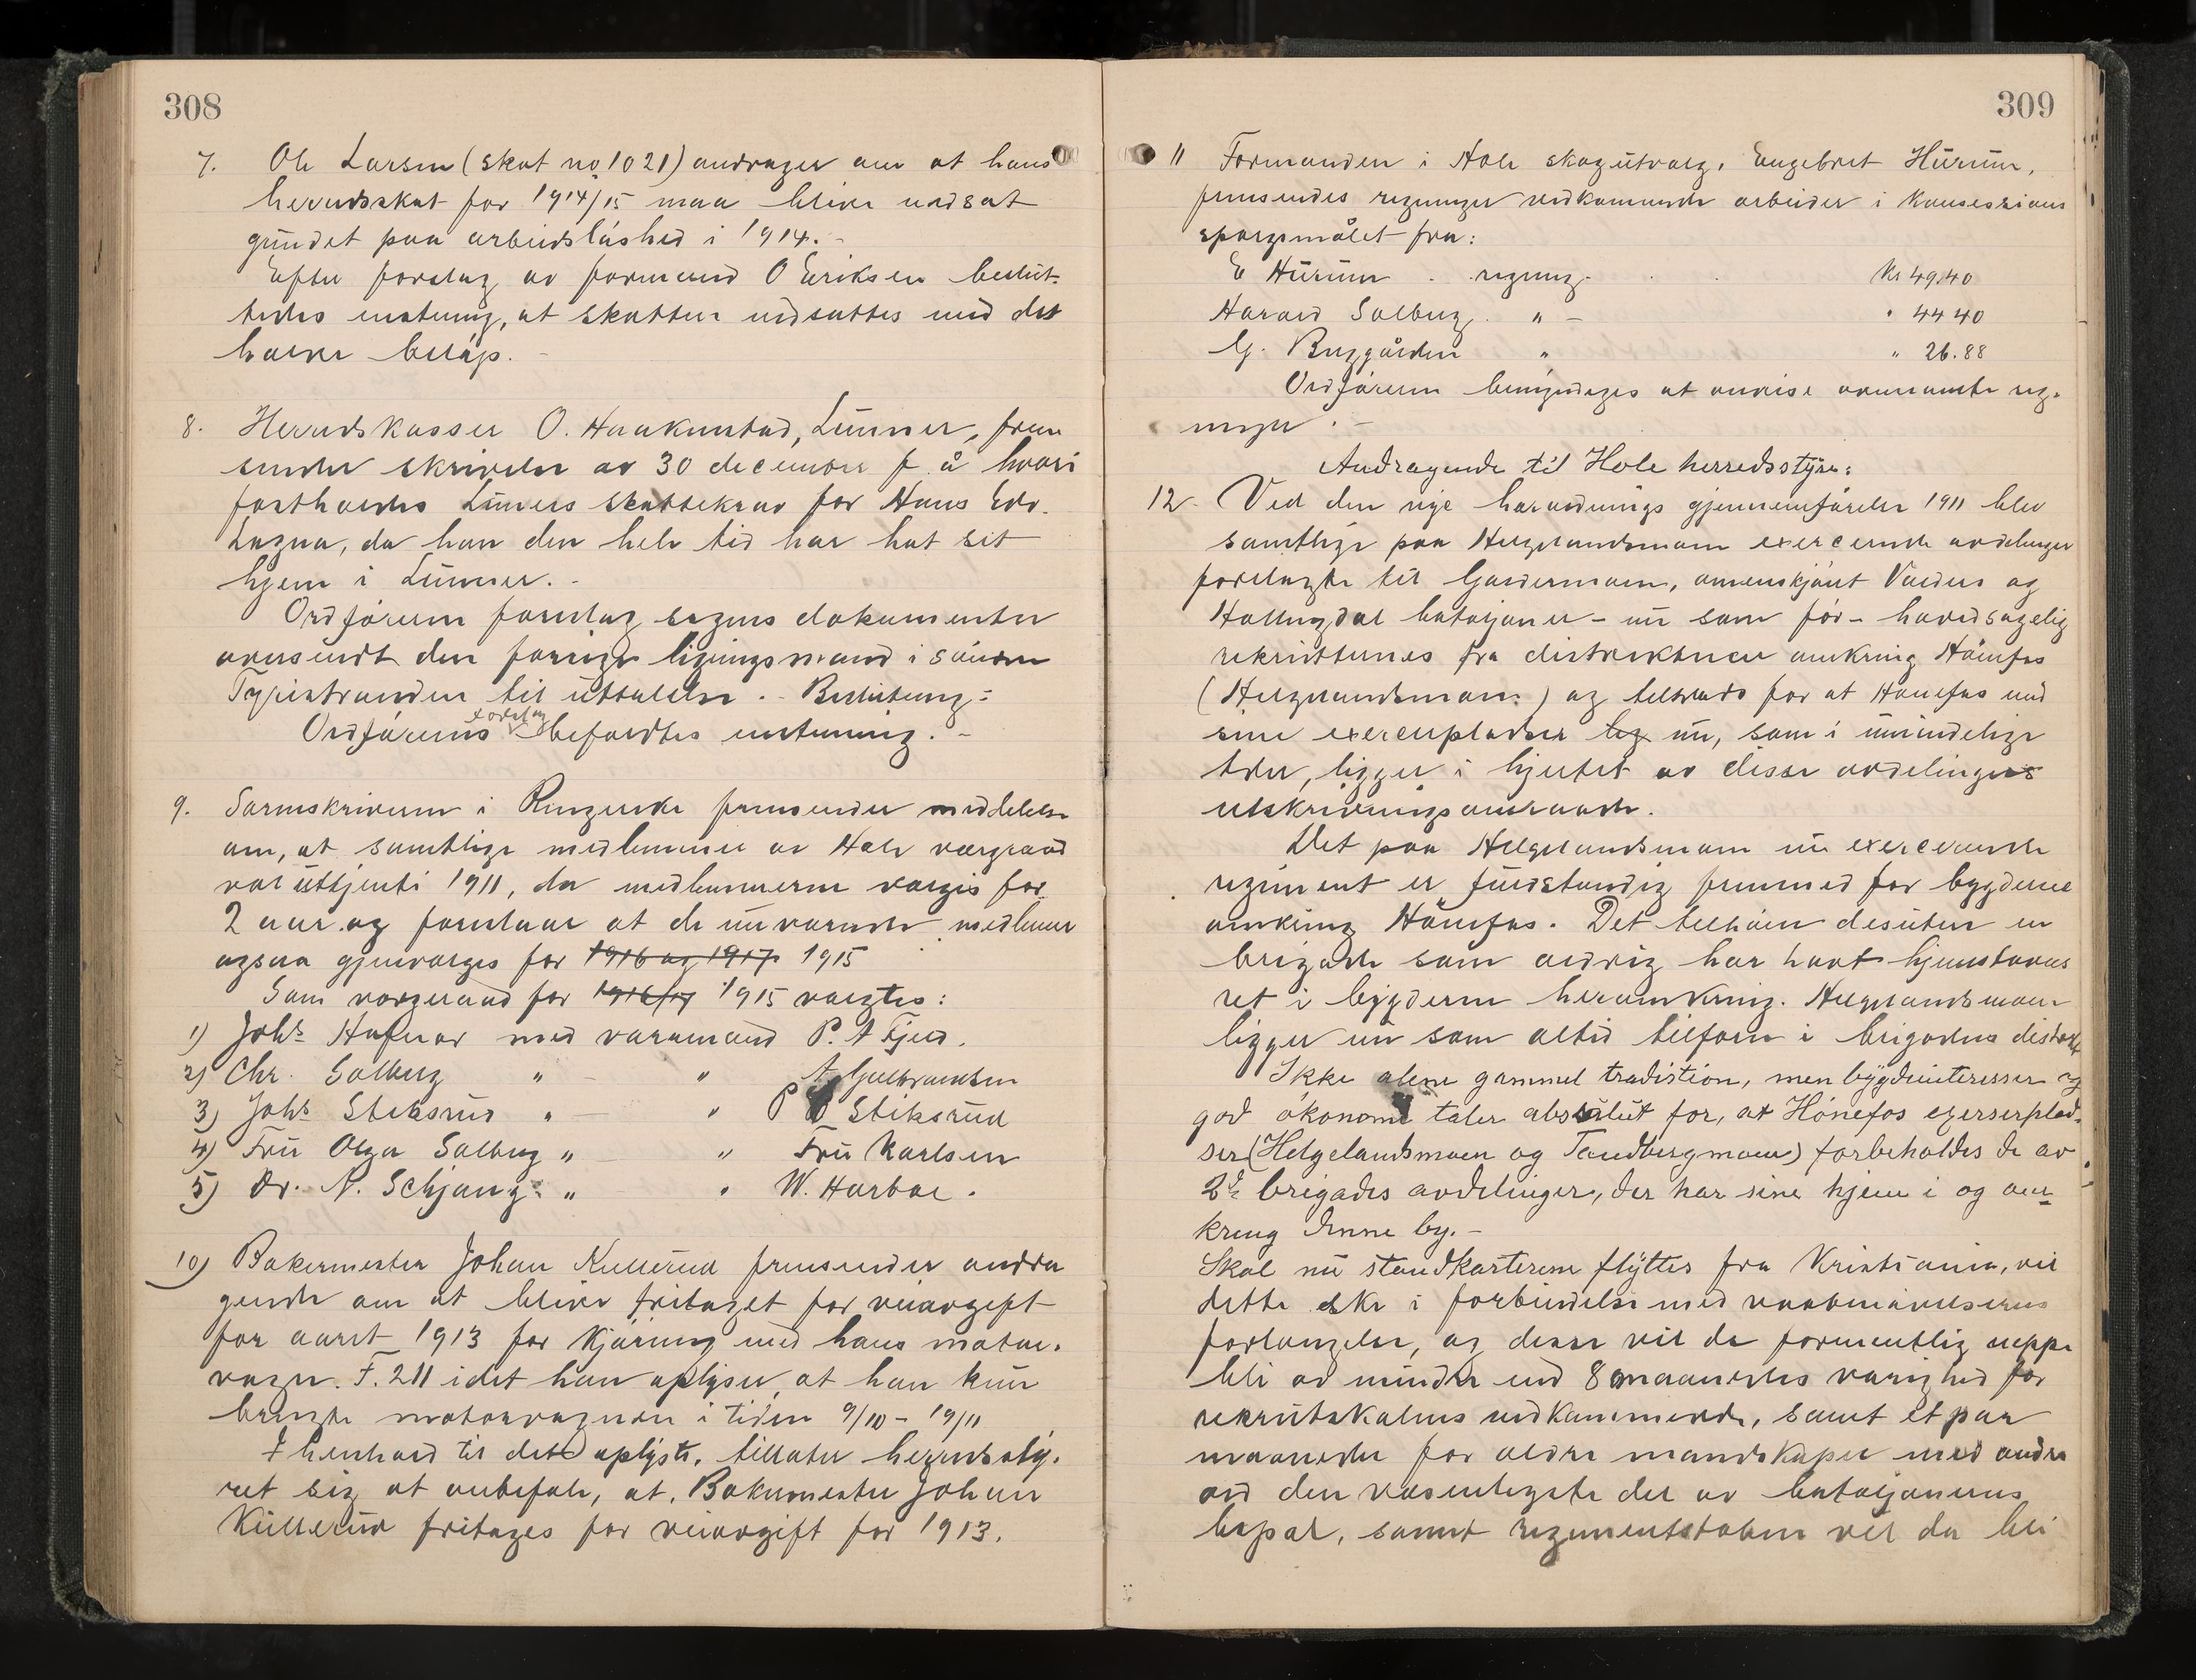 308
7. Ole Larsen (skat no. 1021) andrager om at hans
herredsskat for 1914/15 maa blive nedsat
grundet paa arbeidsløshed i 1914. -
Efter forslag av formand O Eriksen beslut-
tedes enstemmig, at skatten nedsattes med det
halve beløp. -
8. Herredskasser O. Haakenstad, Lunner, frem
sender skrivelse av 30 december f. å hvori
fastholdes Lunners skattekrav for Hans Edv.
, da han den hele tid har hat sit
hjem i Lunner. -
Ordføreren foreslag sagens dokumenter
oversendt den forrige ligningsmand i søndre
Tyristranden til uttalelse. - Beslutning:
Ordførerens forslag befordtes enstemmig. -
9. Sorenskriveren i Ringerike fremsender meddelelse
om, at samtlige medlemmer av Hole vergeraad
var uttjent i 1911, da medlemmerne vælges for
2 aar og foreslaar at de nuværende medlemmer
ogsaa gjenvælges for 1916 og 1917 1915
Som vergeraad for 1916/17 1915 valgtes:
1) Johs Hafnor med varamand P. A Fjeld.
2) Chr. Solberg " - " A Gulbrandsen
3) Johs Stiksrud " - " P Stiksrud
4) Fru Olga Solberg " - " Fru Karlsen
5) Dr. N. Schjang " " W. Harboe.
10) Bakermester Johan Kullerud fremsender andra
gende om at blive fritaget for veiavgift
for aaret 1913 for kjøring med hans motor-
vogn. F. 211 idet han oplyser, at han kun
brugte motorvognen i tiden 9/10 - 19/11
I henhold til det oplyste, tillater herredssty-
ret sig at anbefale, at. Bakermester Johan
Kullerud fritages for veiavgift for 1913.
309
11 Formanden i Hole skogutvalg, Engebret Hurum,
fremsendes regninger vedkommende arbeider i konsesions
spørgsmålet fra:
E Hurum . regning. Kr 49,40
Harald Solberg. " - " 44 40
G. Brggården " " 26.88
Ordføreren bemyndiges at anvise ovennævnte reg-
ninger. -
Andragende til Hole herredsstyre:
12. Ved den nye hærordnings gjennemførelse 1911 blev
samtlige paa Helgelandsmoen exercerende avdelinger
forelagte til Gardermoen, omenskjønt Valdres og
Hallingdal bataljoner - nu som før - hovedsagelig
rekrutteres fra distrikterne omkring Hønefos
(Helgelandsmoen) og tiltrods for at Hønefos med
sine exercerpladser lig nu, som i umindelige
tider, ligger i hjertet av disse avdelingers
utskrivningsomraade.
Det paa Helgelandsmoen nu exercerende
regiment er fuldstændig fremmed for bygderne
omkring Hønefos. Det tilhører desuten en
brigade som aldrig har havt hjemstavns
ret i bygderne heromkring. Helgelandsmoen
ligger nu som altid tilforn i brigadens distrikt
Ikke alene gammel tradistion, men bygdeinteresser og
god økonomi taler absolut for, at Hønefos exerserplad-
ser (Helgelandsmoen og Tandbergmoen) forbeholdes de av
2de brigades avdelinger, der har sine hjem i og om-
kring denne by. -
Skal nu standkvarterene flyttes fra Kristiania, vil
dette ske i forbindelse med vaabenøvelsernes
forlængelse, og disse vil da formentlig neppe
bli av mindre end 8 maaneders varighed for
rekrutskolens vedkommende, samt et par
maaneder for ældre mandskaper med andre
ord den væsentligste del av bataljonenes
bepal, samt regimentstaben vil da bli